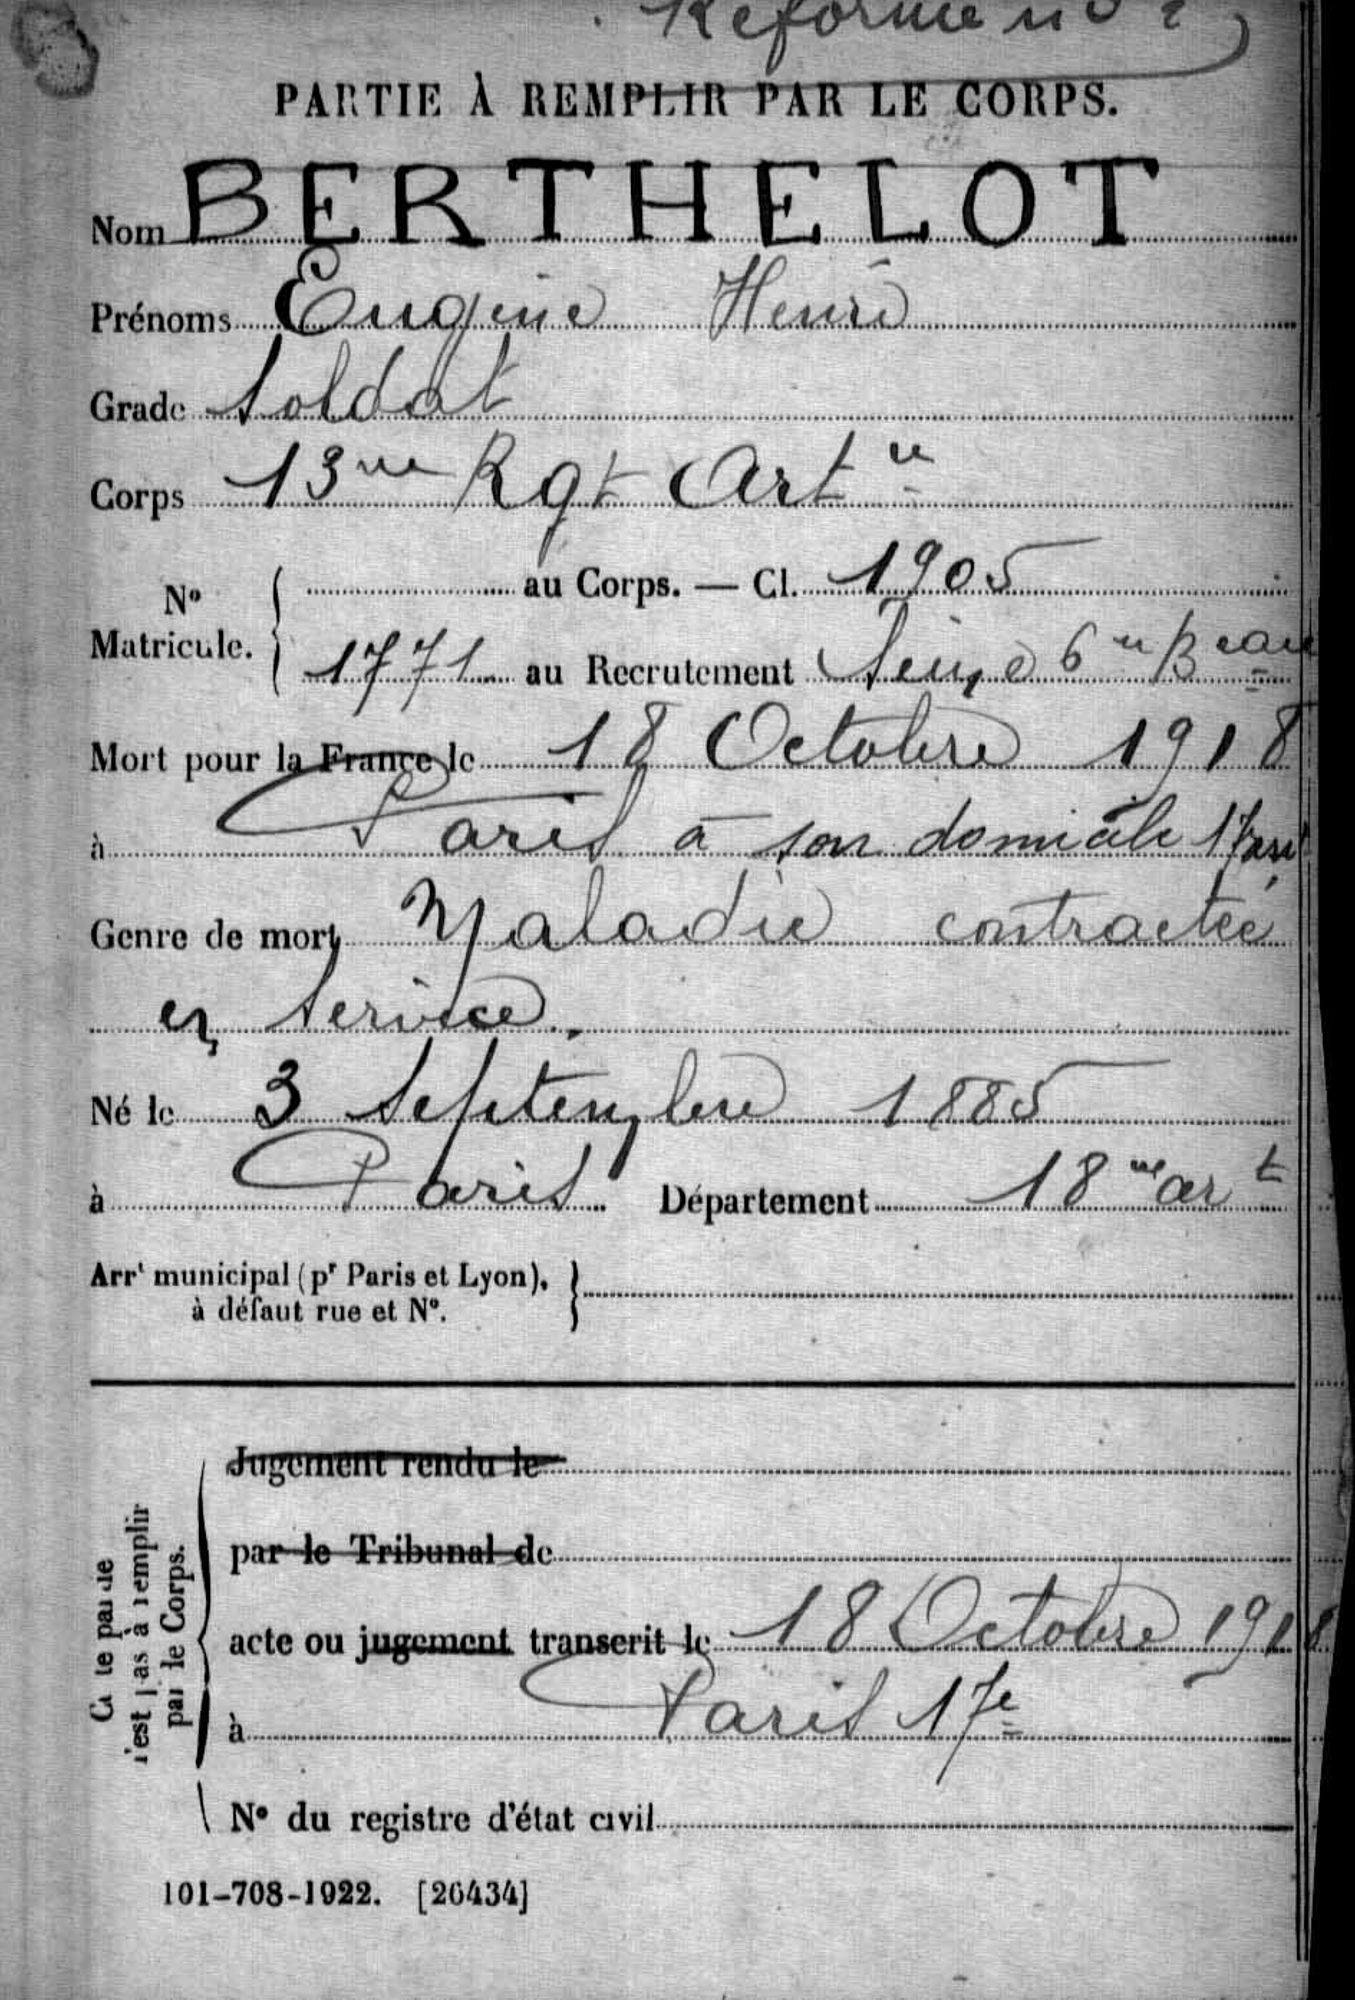 Réforme n° 2
PARTIE À REMPLIR PAR LE CORPS.
Nom BERTHELOT
Prénoms Eugène Henri
Grade Soldat
Corps 13me Rgt Artie
No Matricule. { au Corps. — Cl. 1905
1771 au Recrutement Seine 6me Beau
Mort pour la France le 18 Octobre 1918
à Paris à son domicile 17
Genre de mort Maladie contractée
en service.
Né le 3 Septembre 1885
à Paris Département 18me art
Arrt municipal (pr Paris et Lyon), à défaut rue et No. }
Cette partie n'est pas à remplir par le Corps.
Jugement rendu le
par le Tribunal de
acte ou jugement transcrit le 18 Octobre 1918
à Paris 17e
No du registre d'état civil
101-708-1922. [26434]